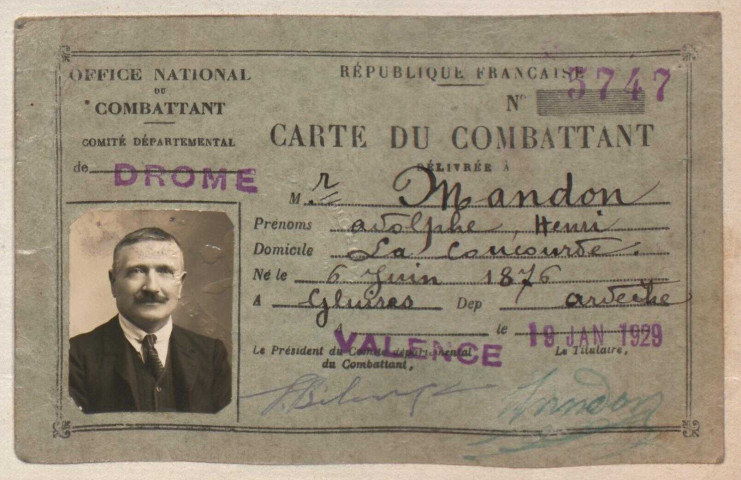 OFFICE NATIONAL
DU
COMBATTANT
COMITÉ DÉPARTEMENTAL
de DROME
RÉPUBLIQUE FRANÇAISE
N° 5747
CARTE DU COMBATTANT
DÉLIVRÉE À
M r Mandon
Prénoms adolphe, Henri
Domicile La Coucourde.
Né le 6 Juin 1876
A Gluires Dép ardèche
A VALENCE le 19 JAN 1929
Le Président du Comité départemental
du Combattant,
Le Titulaire,
Mandon